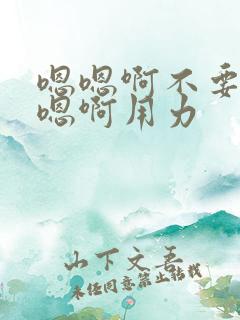 嗯嗯啊不要
嗯啊用力
山下文吾
未经同意禁止转载